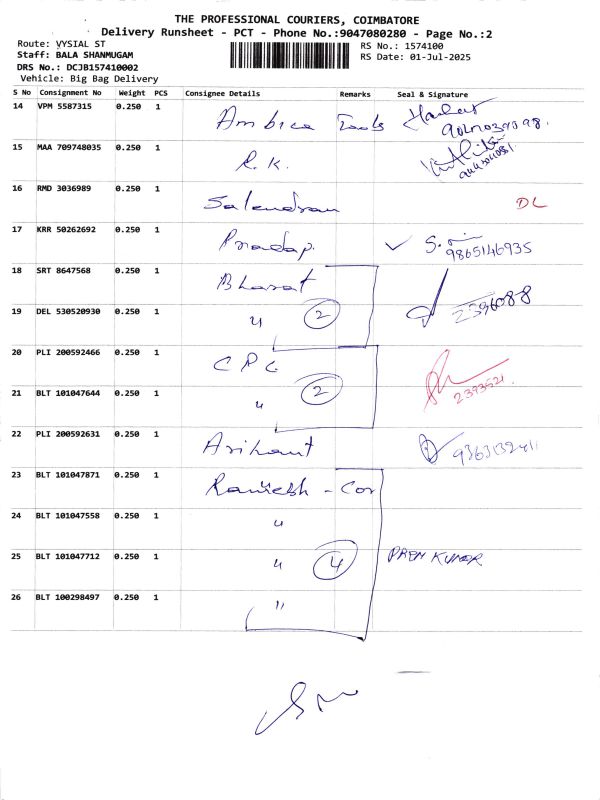 THE PROFESSIONAL COURIERS, COIMBATORE
Delivery Runsheet - PCT - Phone No.:9047080280 - Page No.:2
Route: VYSIAL ST
RS No.: 1574100
Staff: BALA SHANMUGAM
RS Date: 01-Jul-2025
DRS No.: DCJB157410002
Vehicle: Big Bag Delivery
S No Consignment No Weight PCS Consignee Details Remarks Seal & Signature
14 VPM 5587315 0.250 1 Ambica Tools
15 MAA 709748035 0.250 1 R.K.
16 RMD 3036989 0.250 1 Salendran DL
17 KRR 50262692 0.250 1 Pradap. ✓
9865146935
18 SRT 8647568 0.250 1 Bharat
19 DEL 530520930 0.250 1 " 2 2396088
20 PLI 200592466 0.250 1 CPC
21 BLT 101047644 0.250 1 " 2 2393521
22 PLI 200592631 0.250 1 Arihant
23 BLT 101047871 0.250 1 Ramesh - Cor
24 BLT 101047558 0.250 1 "
25 BLT 101047712 0.250 1 " 4 PREM KUMAR
26 BLT 100298497 0.250 1 "